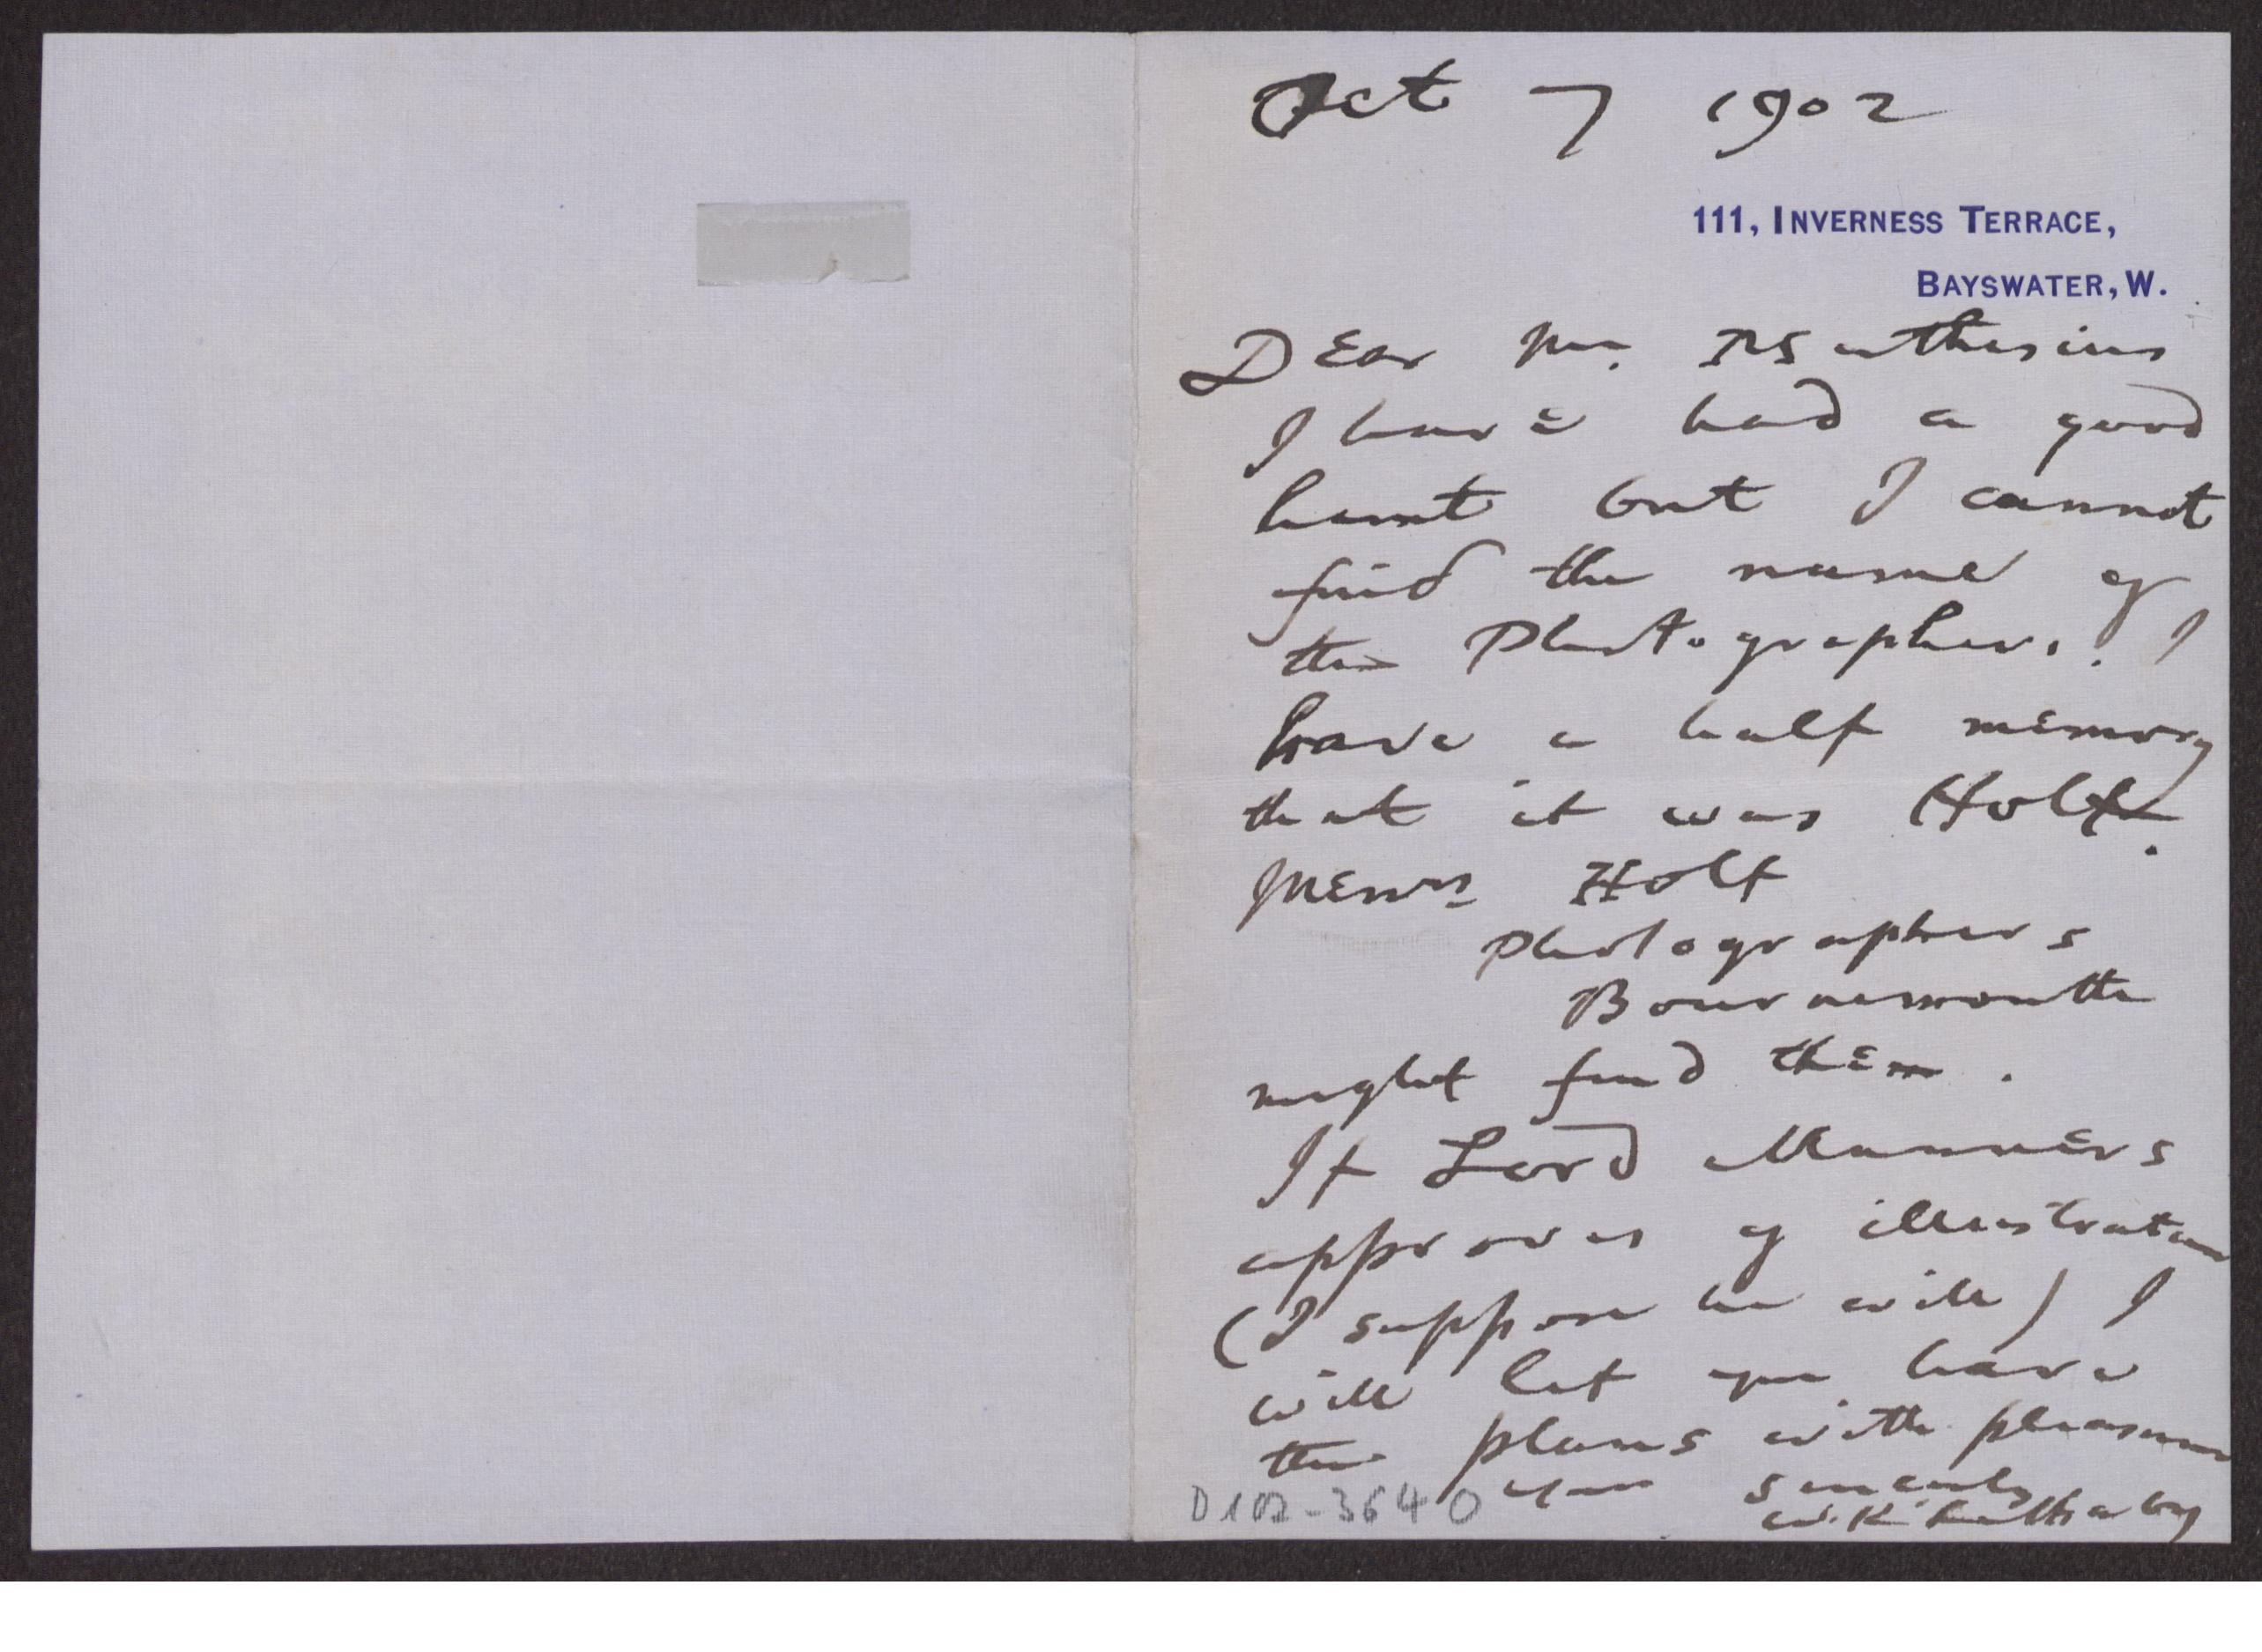 Oct 7 1902
111, INVERNESS TERRACE,
BAYSWATER, W.
Dear Mr. Muthesius
I have had a good
hunt but I cannot
find the name of
the Photographers. I
have a half memory
that it was Holt.
Messrs Holt
Photographers
Bournemouth
might find them.
If Lord Manners
approves of illustration
(I suppose he will) I
will let you have
the plans with pleasure
Yours sincerely
W. R. Lethaby
D102-3640